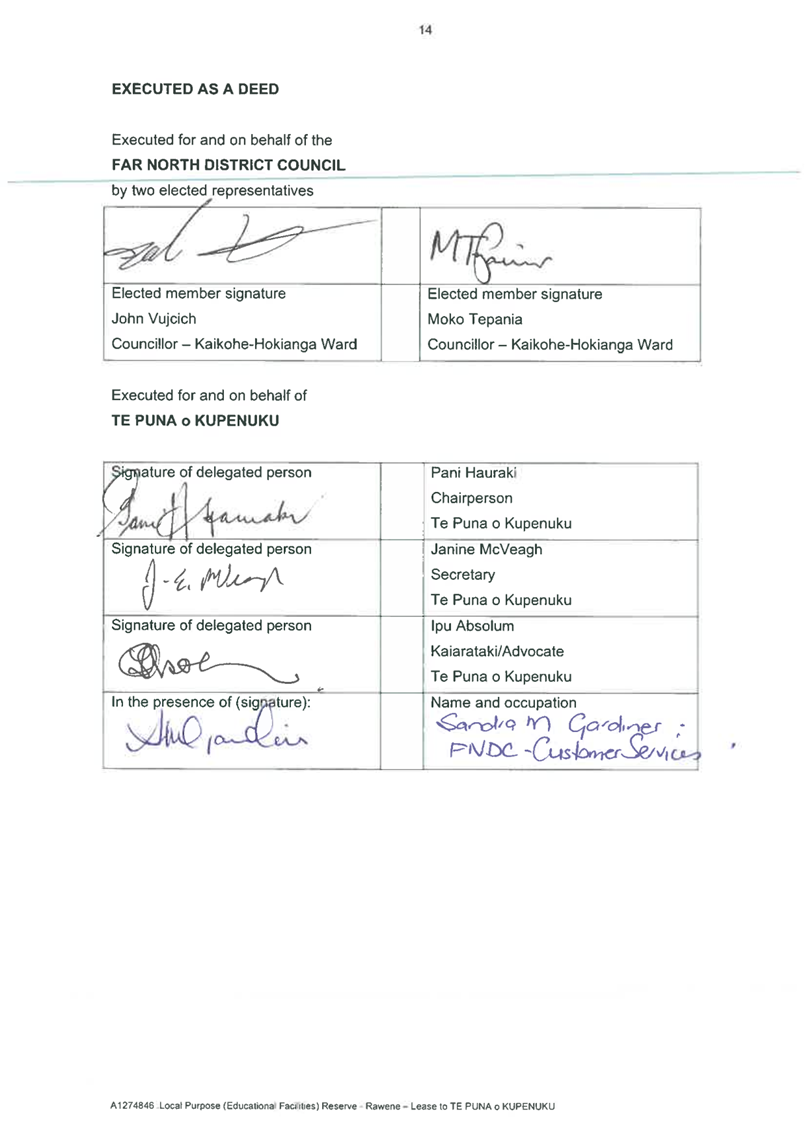 14
EXECUTED AS A DEED
Executed for and on behalf of the
FAR NORTH DISTRICT COUNCIL
by two elected representatives
Elected member signature
John Vujcich
Councillor – Kaikohe-Hokianga Ward
Elected member signature
Moko Tepania
Councillor – Kaikohe-Hokianga Ward
Executed for and on behalf of
TE PUNA o KUPENUKU
Signature of delegated person
Pani Hauraki
Chairperson
Te Puna o Kupenuku
Signature of delegated person
J-E. McVeagh
Janine McVeagh
Secretary
Te Puna o Kupenuku
Signature of delegated person
Ipu Absolum
Kaiarataki/Advocate
Te Puna o Kupenuku
In the presence of (signature):
Name and occupation
Sandra M Gardiner :
FNDC - Customer Services
A1274846 .Local Purpose (Educational Facilities) Reserve - Rawene – Lease to TE PUNA o KUPENUKU